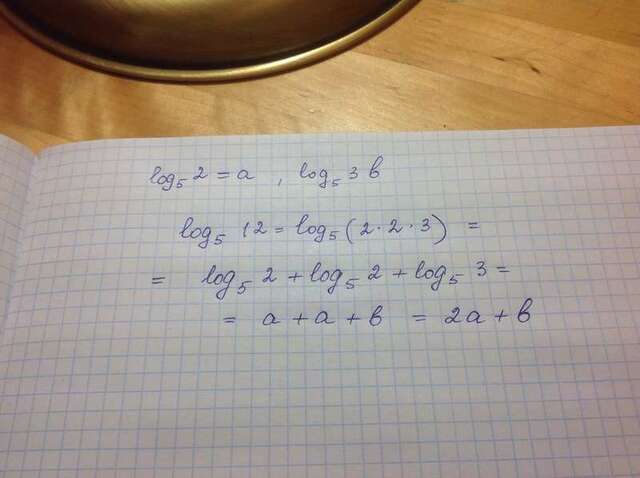 log₅ 2 = a , log₅ 3 b
log₅ 12 = log₅ (2 · 2 · 3) =
= log₅ 2 + log₅ 2 + log₅ 3 =
= a + a + b = 2a + b